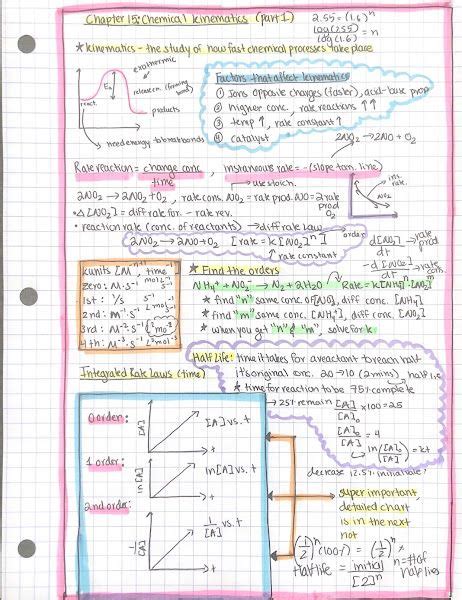 Chapter 15: Chemical Kinematics (part 1)
2.55 = (1.6)^n
log(2.55) / log(1.6) = n
* Kinematics - the study of how fast chemical processes take place
exothermic
Ea
release en. (forming bond)
react.
products
need energy to break bonds
Factors that affect kinematics
① Ions opposite charges (faster), acid-base prop
② higher conc, rate reactions ↑↑
③ temp ↑, rate constant ↑
④ catalyst
2NO2 → 2NO + O2
Rate reaction = change conc / time, instaneous rate = -(slope tan. line)
* use stoich.
ins. rate.
NO2
2NO2 → 2NO + O2, rate cons. NO2 = rate prod. NO = 2 rate prod O2
• Δ[NO2] = diff rate for - rate rev.
• reaction rate (conc. of reactants) → diff rate law
order
2NO2 → 2NO + O2 [rate = k[NO2]^n]
rate constant
d[NO2] / dt → rate prod
-d[NO2] / dt → rate cons.
k units [M^-n+1, time^-1]
zero: M s^-1
1st: 1/s s^-1
2nd: M^-1 s^-1
3rd: M^-2 s^-1
4th: M^-3 s^-1
* Find the orders
NH4+ + NO2- → N2 + 2H2O Rate = k[NH4]^n[NO2]^m
* find "n" same conc of [NO2], diff conc. [NH4]
* find "m" same conc. [NH4], diff conc. [NO2]
* when you get "n" & "m", solve for k
Half Life: time it takes for a reactant to reach half
it's original conc. 20 → 10 (2 mins) half life
* time for reaction to be 75% complete
→ 25% remain [A] / [A]0 x 100 = 25
[A]0 / [A] = 4
ln([A]0 / [A]) = kt
decrease 12.5% initial
Integrated Rate Laws (time)
0 order:
[A]
[A] vs. t
t
1 order:
ln[A]
ln[A] vs. t
t
2nd order:
1/[A] vs. t
t
super important,
detailed chart
is in the next
not
(1/2)^n (100%) = (1/2)^n x
half life = initial / [2]^n
n = # of half lies